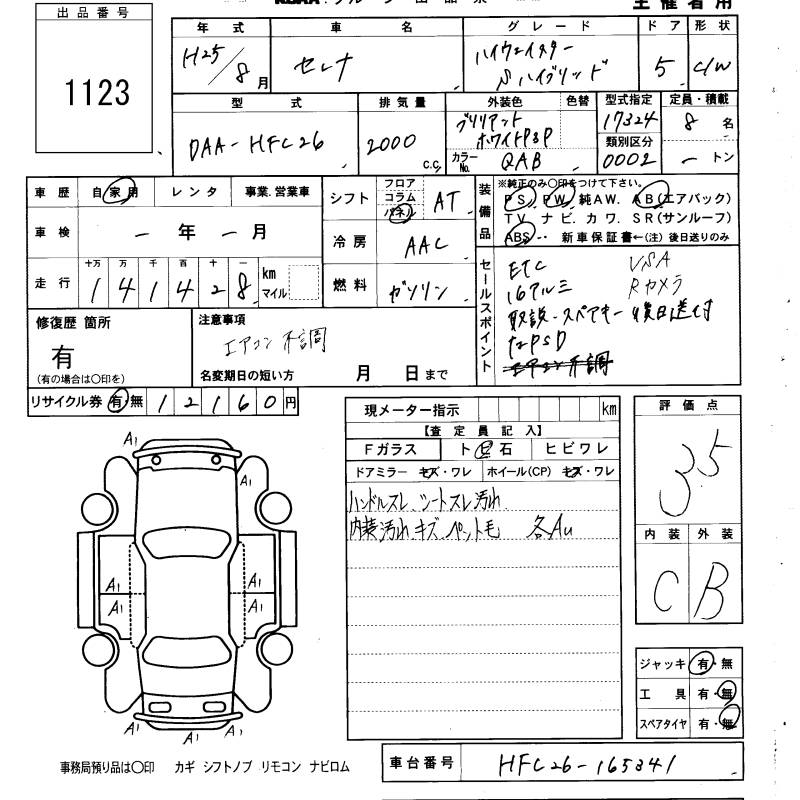 主催者用
出品番号
1123
年式 車名 グレード ドア 形状
H25/8月 セレナ ハイウェイスター Sハイブリッド 5 C/W
型式 排気量 外装色 色替 型式指定 定員・積載
DAA-HFC26 2000 c.c. ブリリアントホワイトP3P 17324 8名
類別区分
カラーNo. QAB 0002 ートン
車歴 自家用 レンタ 事業.営業車
車検 ー年ー月
走行 十万 万 千 百 十 一 km マイル
141428
シフト フロア コラム パネル AT
冷房 AAC
燃料 ガソリン
装備品 ※純正のみ○印をつけて下さい。
PS. PW. 純AW. AB(エアバック)
TV. ナビ. カワ. SR(サンルーフ)
ABS‥ 新車保証書←(注)後日送りのみ
セールスポイント
ETC VSA
16アルミ Rカメラ
取説・スペアキー 後日送付
エアコン不調
修復歴 箇所
有
(有の場合は○印を)
注意事項
エアコン不調
名変期日の短い方 月 日まで
リサイクル券 有 無 12160円
現メーター指示 km
【査定員記入】
Fガラス ト 石 ヒビワレ
ドアミラー キズ・ワレ ホイール(CP) キズ・ワレ
ハンドルスレ、シートスレ汚れ
内装汚れ キズ ペット毛 各AU
評価点
3.5
内装 外装
C B
A1
A1
A1 A1
A1 A1
A1 A1 A1
ジャッキ 有・無
工具 有・無
スペアタイヤ 有・無
事務局預り品は○印 カギ シフトノブ リモコン ナビロム
車台番号 HFC26-165341